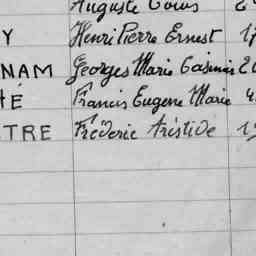 Auguste Louis 2
Y Henri Pierre Ernest 17
NAM Georges Marie Casimir 20
HÉ Francis Eugene Marie 4
TRE Fréderic Aristide 19